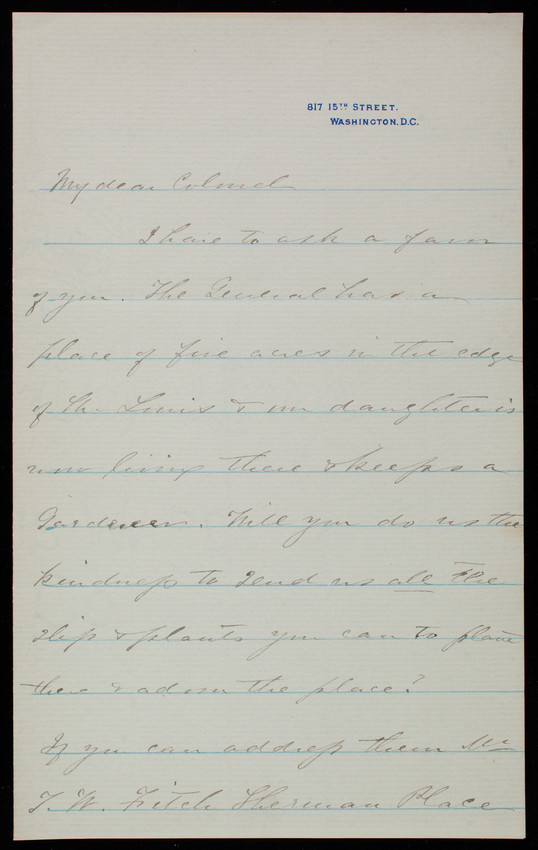 817 15TH STREET.
WASHINGTON, D.C.
My dear Colonel
I have to ask a favor
of you. The General has a
place of five acres in the edge
of St. Louis & our daughter is
now living there & keeps a
Gardener. Will you do us the
kindness to send us all the
slips & plants you can to plant
there & adorn the place?
If you can address them Mr
T. W. Fitch Sherman Place